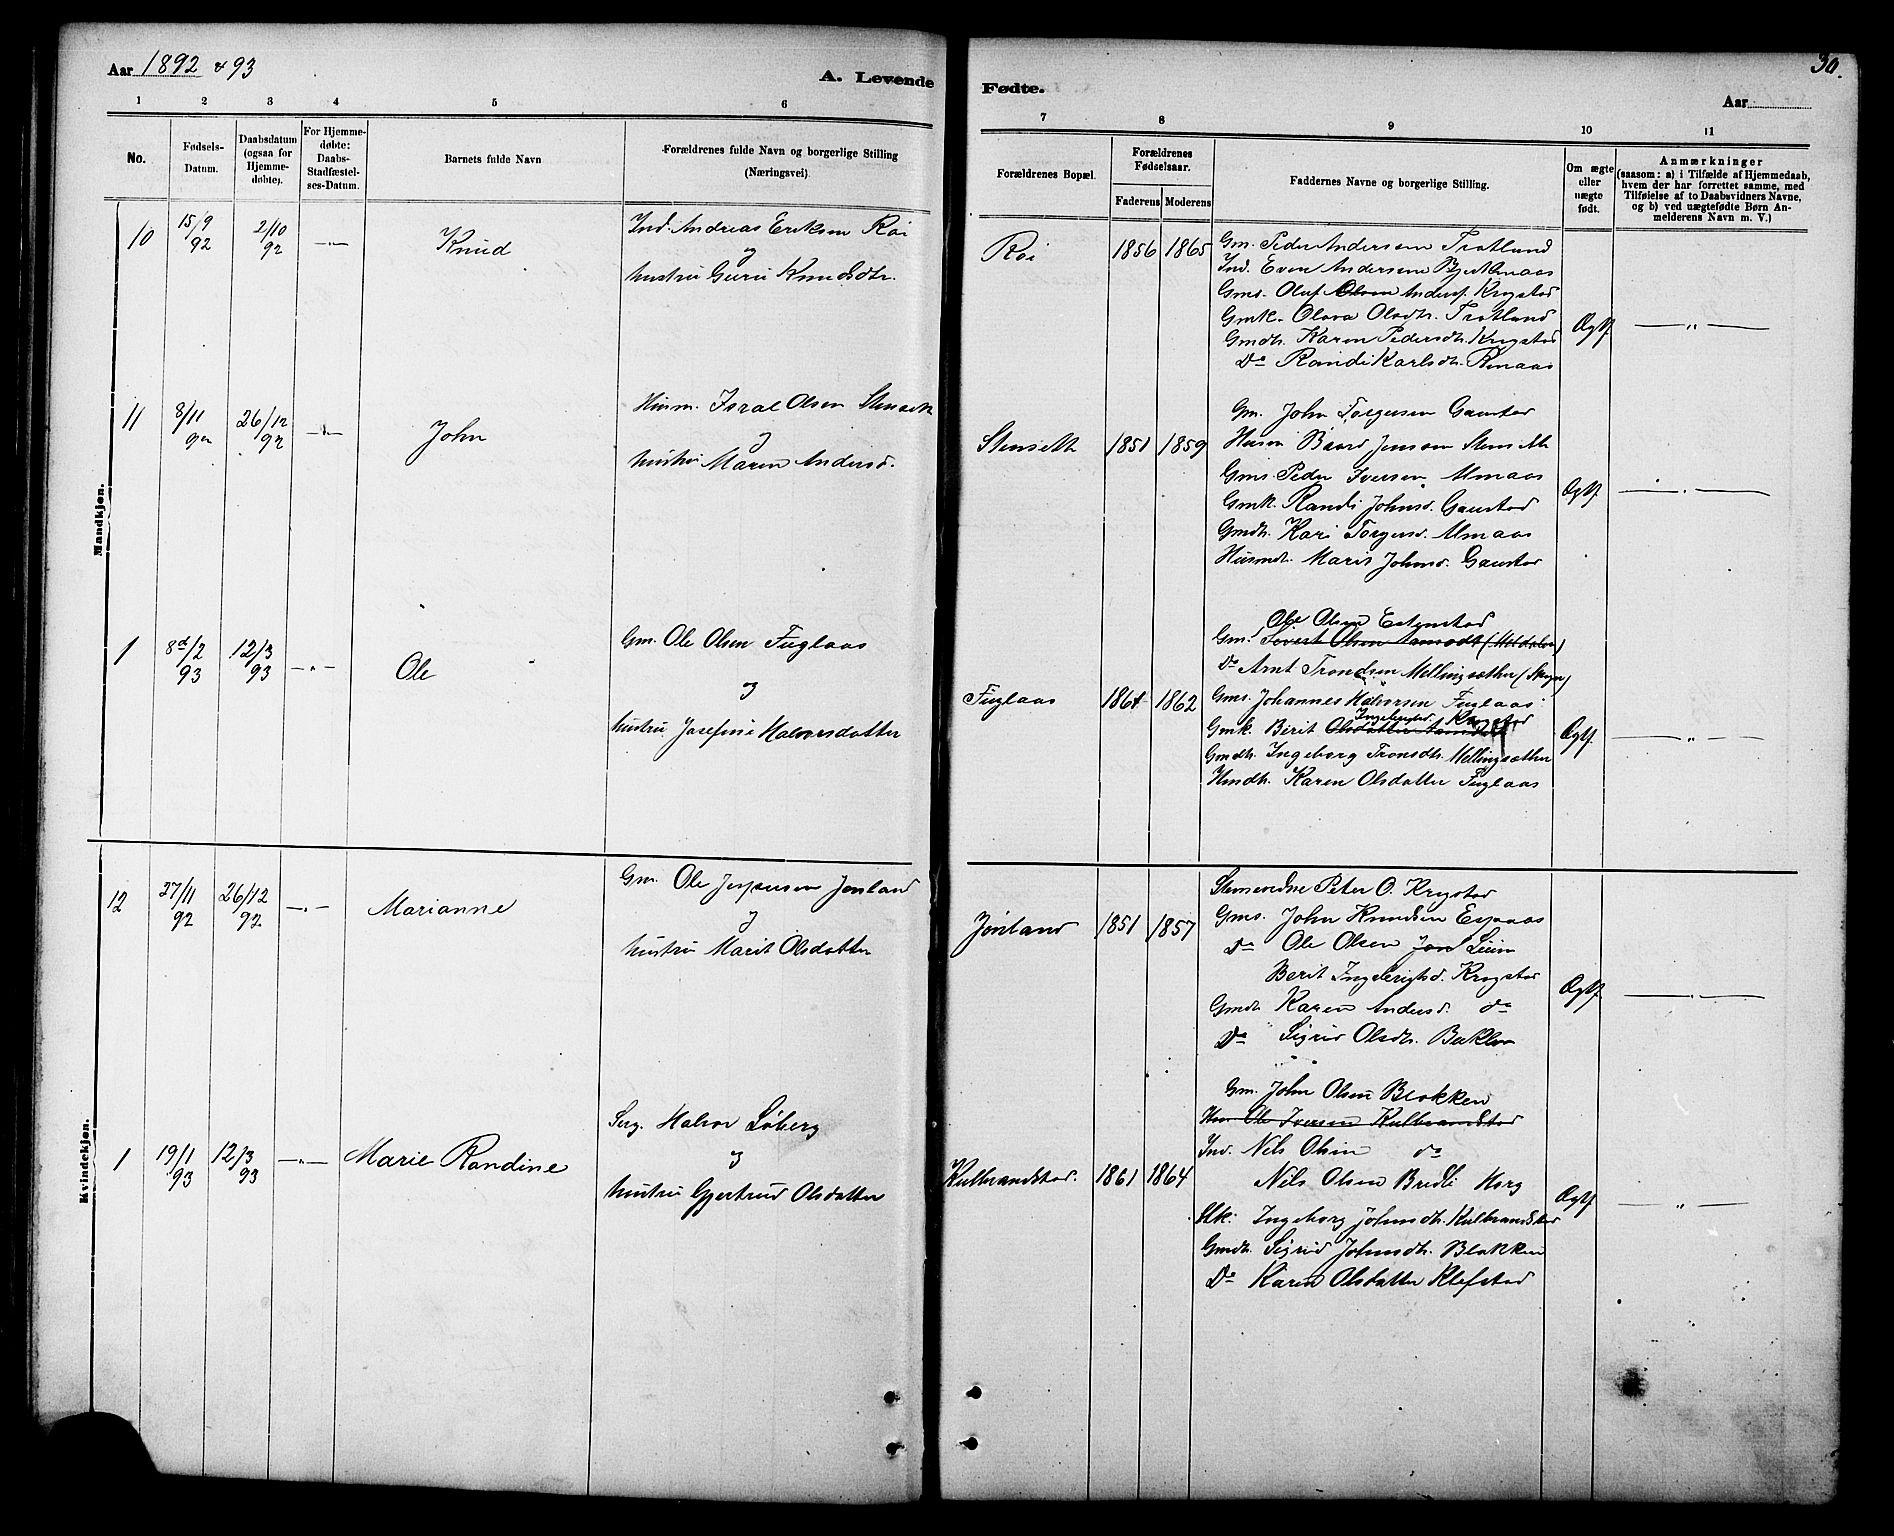 Aar 1892 & 93
A. Levende
Fødte.
Aar
30.
1 2 3 4 5 6 7 8 9 10 11
No.
Fødsels-
Datum.
Daabsdatum
(ogsaa for
Hjemme-
døbte).
For Hjemme-
døbte:
Daabs-
Stadfæstel-
ses-Datum.
Barnets fulde Navn
Forældrenes fulde Navn og borgerlige Stilling
(Næringsvei).
Forældrenes Bopæl.
Forældrenes
Fødselsaar.
Faderens Moderens
Faddernes Navne og borgerlige Stilling.
Om ægte
eller
uægte
født.
Anmærkninger
(saasom: a) i Tilfælde af Hjemmedaab,
hvem der har forrettet samme, med
Tilføielse af to Daabsvidners Navne,
og b) ved uægtefødte Børn An-
melderens Navn m. V.)
Mandkjøn.
10
15/9
92
2/10
92
—"—
Knud
Ind. Andreas Eriksen Roi
og
hustru Guru Knudsdtr.
Roi
1856 1865
Gm. Peder Andersen Trotland
Ind. Even Andersen
Gms. Oluf Olsen Anders. Krogstad
Gmk. Olava Olsdtr. Trotland
Gmdtr. Karen Pedersdtr. Krogstad
Do Randi Karlsdtr.
Ægtf.
—"—
11
8/11
92
26/12
92
—"—
John
Husm. Isral Olsen Stenseth
og
hustru Maren Andersd.
Stenseth
1851 1859
Gm. John Torgersen Gaustad
Husm Baard Jensen Stenseth
Gms. Peder Iversen Almaas
Gmk. Randi Johnsd. Gaustad
Gmdtr. Kari Torgersd. Almaas
Husmdtr. Marit Johnsd. Gaustad
Ægtf.
—"—
1
8de/2
93
12/3
93
—"—
Ole
Gm. Ole Olsen Fuglaas
og
hustru Josefine Halvorsdatter
Fuglaas
1861 1862
Ole Olsen Estenstad
Gm. Sivert Olsen (Meldalen)
Do Arnt Trondsen Mellingsæther
Gms. Johannes Halvorsen Fuglaas
Ingebrigtsd. Krogstad
Gmk. Berit Olsdatter
Gmdtr. Ingeborg Tronsdtr. Mellingsæther
Hmdtr. Karen Olsdatter Fuglaas
Ægtf.
—"—
Kvindekjøn.
12
27/11
92
26/12
92
—"—
Marianne
Gm. Ole Jespersen Jønland
og
hustru Marit Olsdatter
Jønland
1851 1857
Peter O. Krogstad
Gms. John Knudsen
Do Ole Olsen
Berit Ingebrigtsd. Krogstad
Gmdtr. Karen Andersd. do
Do Sigrid Olsdtr.
Ægtf.
—"—
1
19/1
93
12/3
93
—"—
Marie Randine
Serg. Halvor Løberg
og
hustru Gjertrud Olsdatter
Kulbrandstad.
1861 1864
Gm. John Olsen Blokken
Hm. Ole Iversen Kulbrandstad
Ind. Nils Olsen do
Nils Olsen Bredli Horg
Ingeborg Johnsdtr. Kulbrandstad
Gmdtr. Sigrid Johnsdtr. Blokken
Do Karen Olsdatter Klefstad
Ægtf.
—"—